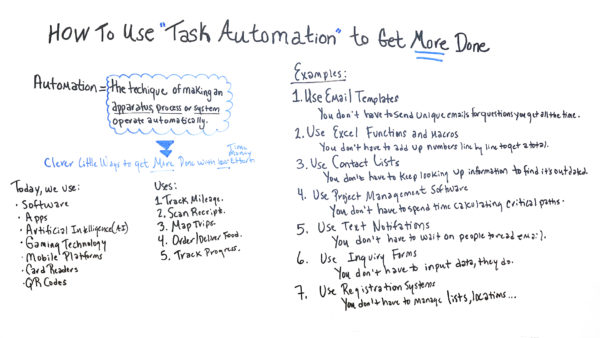 How To Use "Task Automation" to Get More Done
Automation =
the techique of making an
apparatus, process or system
operate automatically.
Time
Money
Clever Little Ways to get More Done with less Effort
Today, we use:
• Software
• Apps
• Artificial Intelligence (AI)
• Gaming Technology
• Mobile Platforms
• Card Readers
• QR Codes
Uses:
1. Track Mileage.
2. Scan Receipt.
3. Map Trips.
4. Order/Deliver Food.
5. Track Progress.
Examples:
1. Use Email Templates
You don't have to send unique emails for questions you get all the time.
2. Use Excel Functions and Macros
You don't have to add up numbers line by line to get a total.
3. Use Contact Lists
You don't have to keep looking up information to find its outdated.
4. Use Project Management Software
You don't have to spend time calculating critical paths.
5. Use Text Notifations
You don't have to wait on people to read email.
6. Use Inquiry Forms
You don't have to input data, they do.
7. Use Registration Systems
You don't have to manage lists, locations...